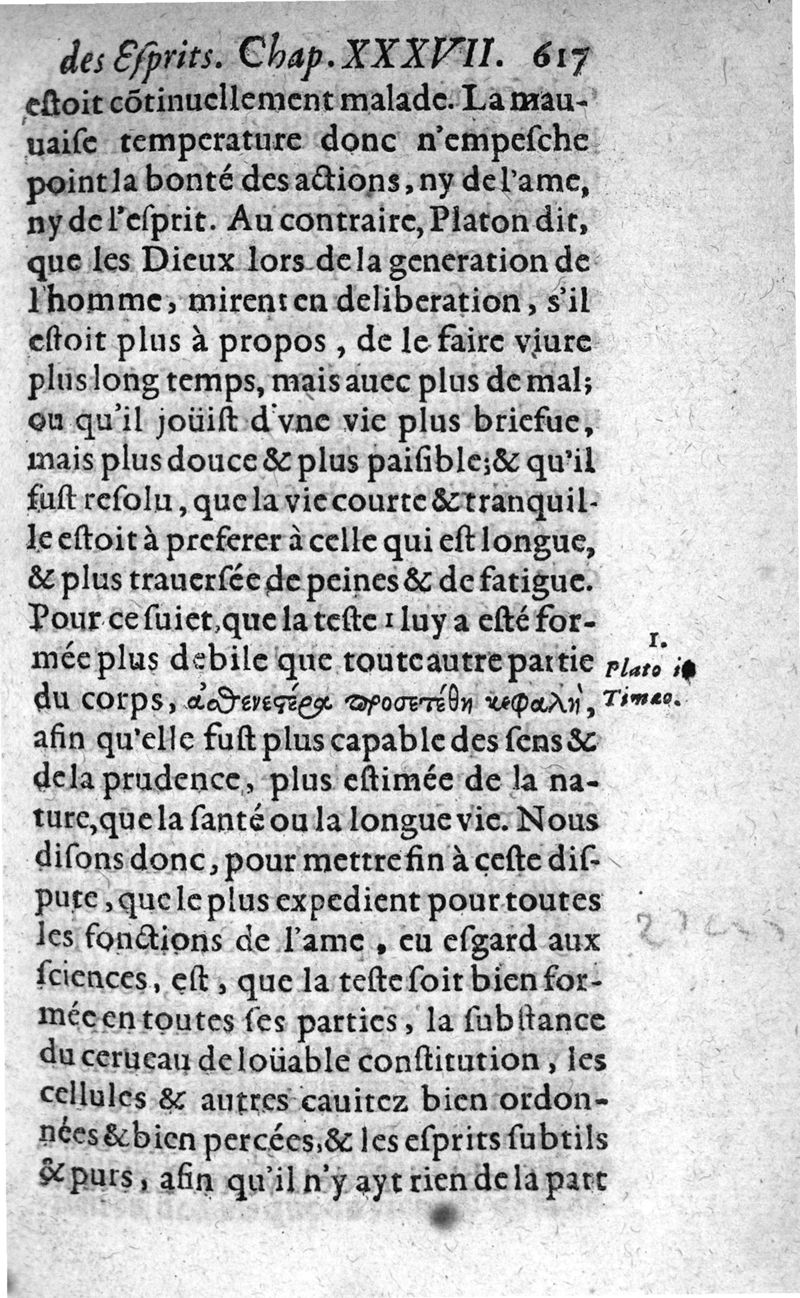 des Eſprits. Chap. XXXVII. 617
eſtoit cõtinuellement malade. La mau-
uaiſe temperature donc n'empeſche
point la bonté des actions, ny de l'ame,
ny de l'eſprit. Au contraire, Platon dit,
que les Dieux lors de la generation de
l'homme, mirent en deliberation, s'il
eſtoit plus à propos, de le faire viure
plus long temps, mais auec plus de mal;
ou qu'il joüiſt d'vne vie plus briefue,
mais plus douce & plus paiſible; & qu'il
fuſt reſolu, que la vie courte & tranquil-
le eſtoit à preferer à celle qui eſt longue,
& plus trauerſée de peines & de fatigue.
Pour ce ſuiet, que la teſte 1 luy a eſté for-
mée plus debile que toute autre partie
du corps, ἀσθενεςέρα προσετέθη κεφαλὴ,
afin qu'elle fuſt plus capable des ſens &
de la prudence, plus eſtimée de la na-
ture, que la ſanté ou la longue vie. Nous
diſons donc, pour mettre fin à ceſte diſ-
pute, que le plus expedient pour toutes
les fonctions de l'ame, eu eſgard aux
ſciences, eſt, que la teſte ſoit bien for-
mée en toutes ſes parties, la ſubſtance
du cerueau de loüable conſtitution, les
cellules & autres cauitez bien ordon-
nées & bien percées, & les eſprits ſubtils
& purs, afin qu'il n'y ayt rien de la part
1.
Plato in
Timæo.